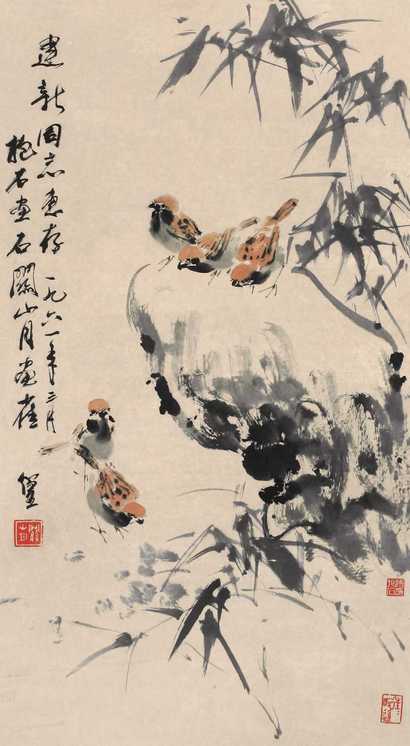 建新同志惠存一九六一年三月
抱石画石关山月画雀